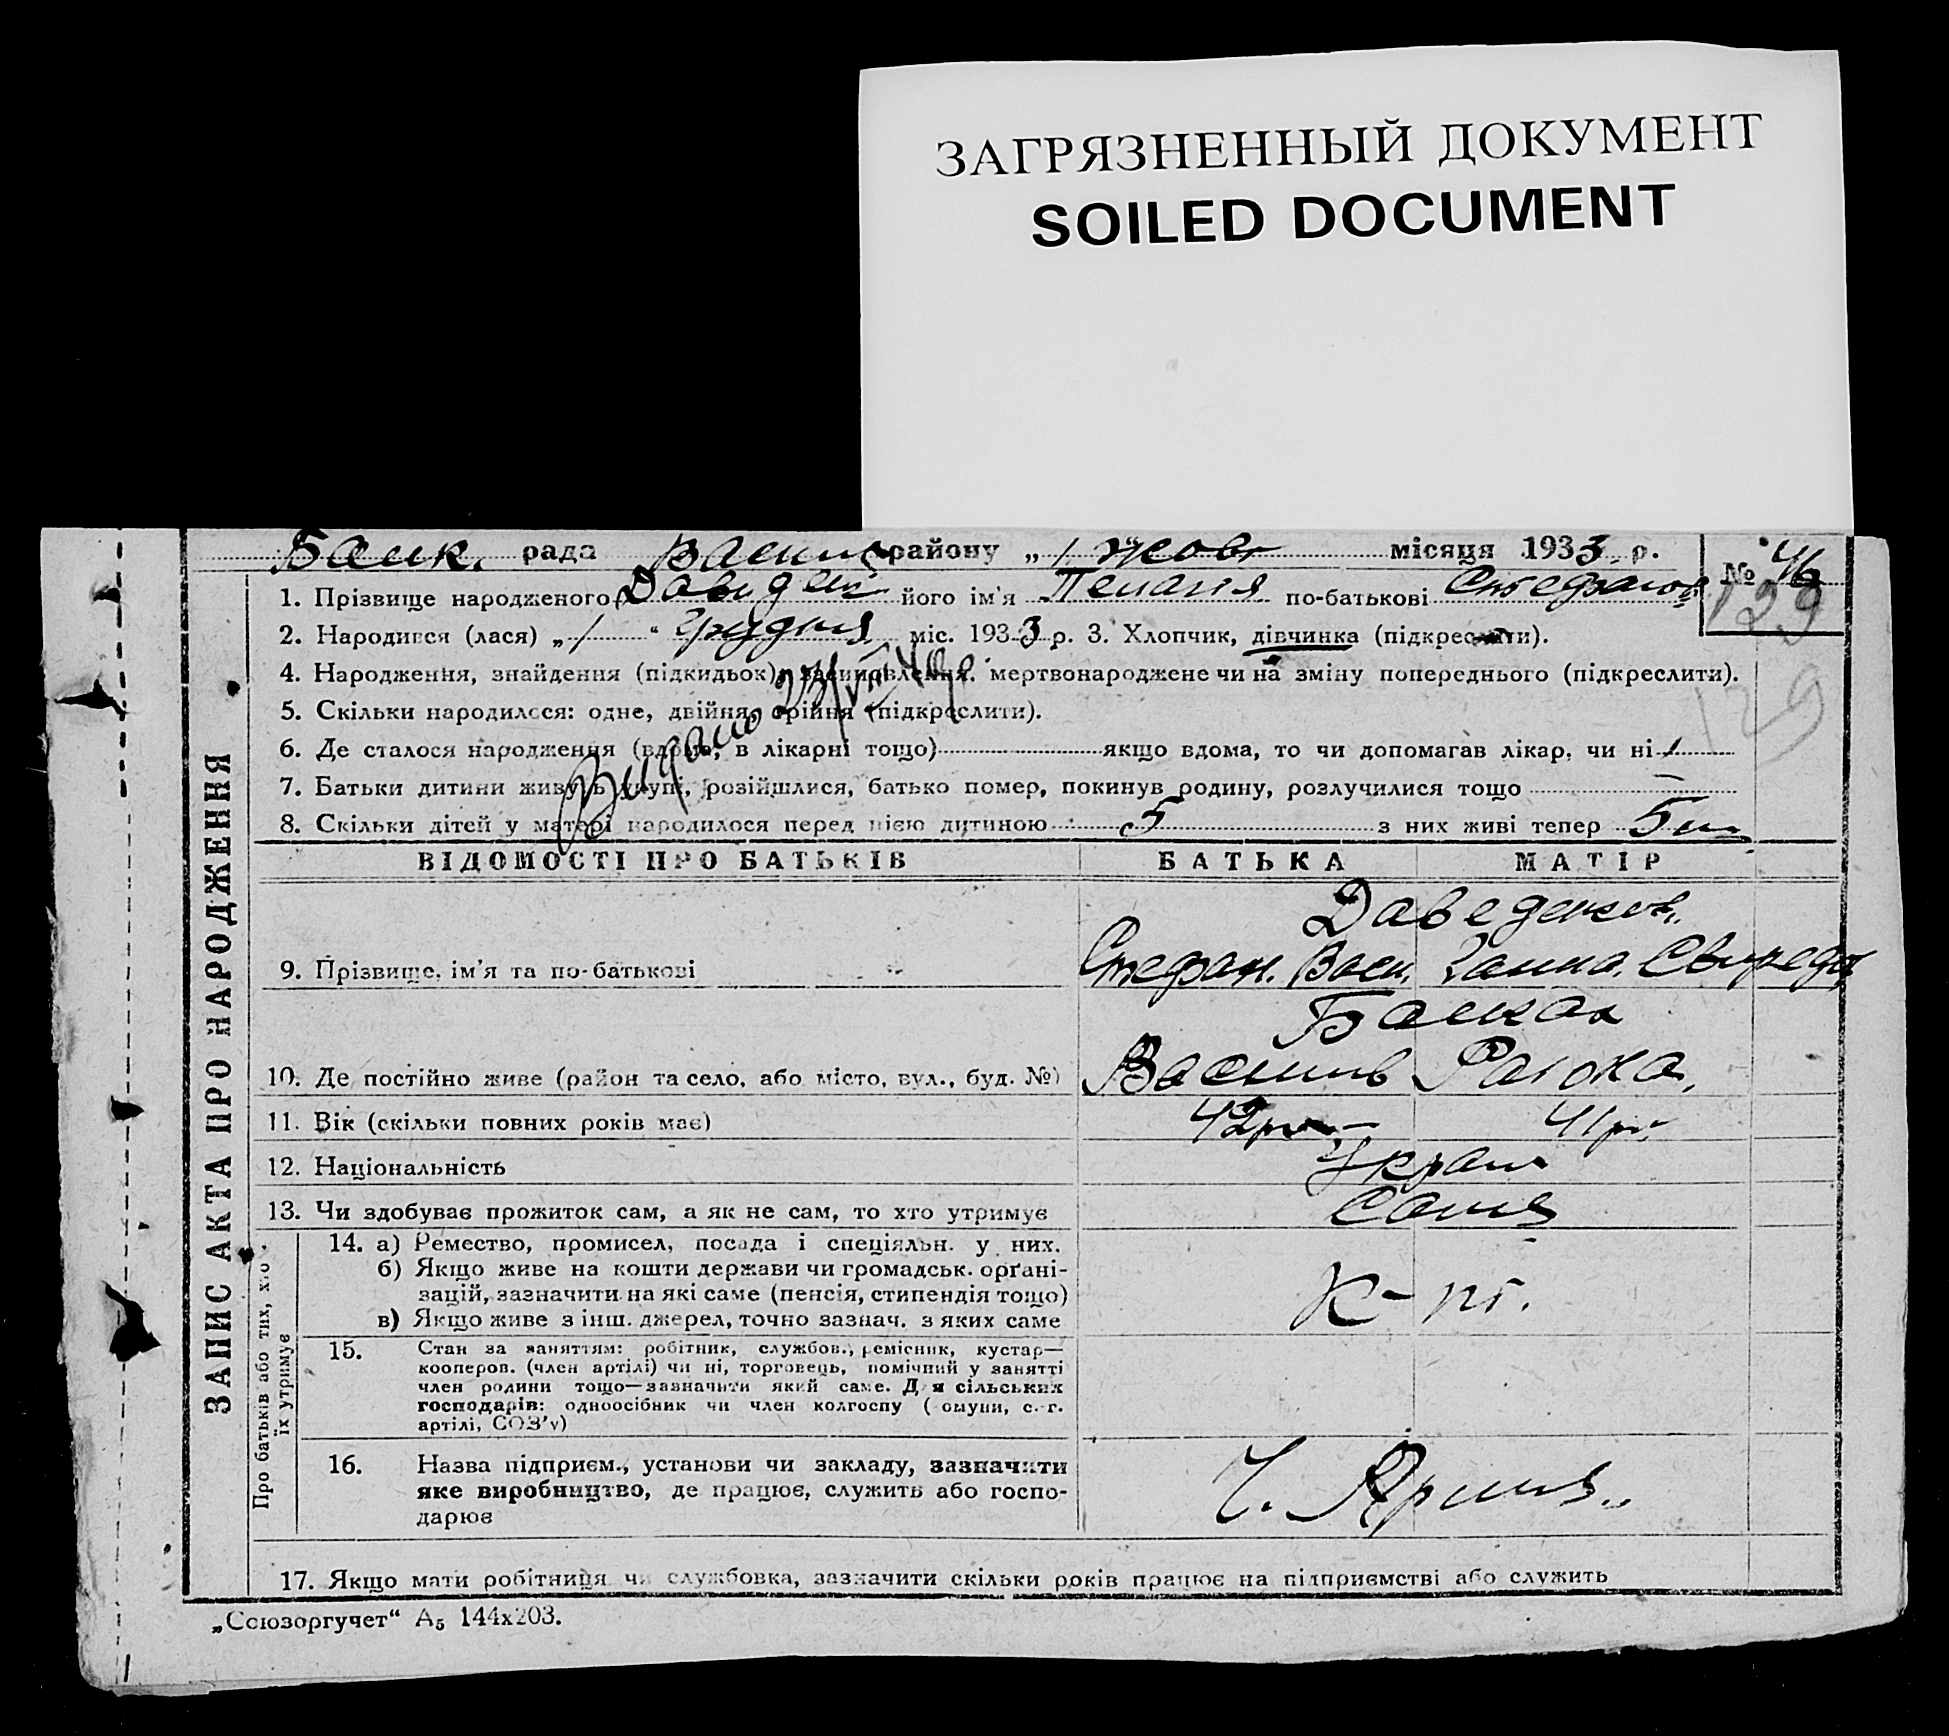 ЗАГРЯЗНЕННЫЙ ДОКУМЕНТ
SOILED DOCUMENT
рада району „ 1 " жовт місяця 1933 р.
№ 46
129
1. Прізвище народженого його ім'я Пелагія по-батькові Стефанов
2. Народився (лася) „ 1 " Грудня міс. 1933 р. 3. Хлопчик, дівчинка (підкреслити).
4. Народження, знайдення (підкидьок), засиновлення, мертвонароджене чи на зміну попереднього (підкреслити).
129
5. Скільки народилося: одне, двійня, трійня (підкреслити).
6. Де сталося народження (вдома, в лікарні тощо) якщо вдома, то чи допомагав лікар, чи ні
7. Батьки дитини живуть укупі, розійшлися, батько помер, покинув родину, розлучилися тощо —
8. Скільки дітей у матері народилося перед цією дитиною 5 з них живі тепер 5
Видано
ВІДОМОСТІ ПРО БАТЬКІВ БАТЬКА МАТІР
9. Прізвище, ім'я та по-батькові
Стефан. Вас. Ганна.
10. Де постійно живе (район та село, або місто, вул., буд. №)
Васильв
11. Вік (скільки повних років має) 42 41
12. Національність Украін
13. Чи здобуває прожиток сам, а як не сам, то хто утримує Сами
14. а) Ремество, промисел, посада і спеціяльн. у них.
б) Якщо живе на кошти держави чи громадськ. орґані-
зацій, зазначити на які саме (пенсія, стипендія тощо)
в) Якщо живе з інш. джерел, точно зазнач. з яких саме
15. Стан за заняттям: робітник, службов., ремісник, кустар—
кооперов. (член артілі) чи ні, торговець, помічний у занятті
член родини тощо—зазначити який саме. Для сільських
господарів: одноосібник чи член колгоспу (комуни, с.-г.
артілі, СОЗ'у)
16. Назва підприєм., установи чи закладу, зазначити
яке виробництво, де працює, служить або госпо-
дарює
17. Якщо мати робітниця чи службовка, зазначити скільки років працює на підприємстві або служить
ЗАПИС АКТА ПРО НАРОДЖЕННЯ
Про батьків або тих, хто
їх утримує
„Союзоргучет" А5 144х203.